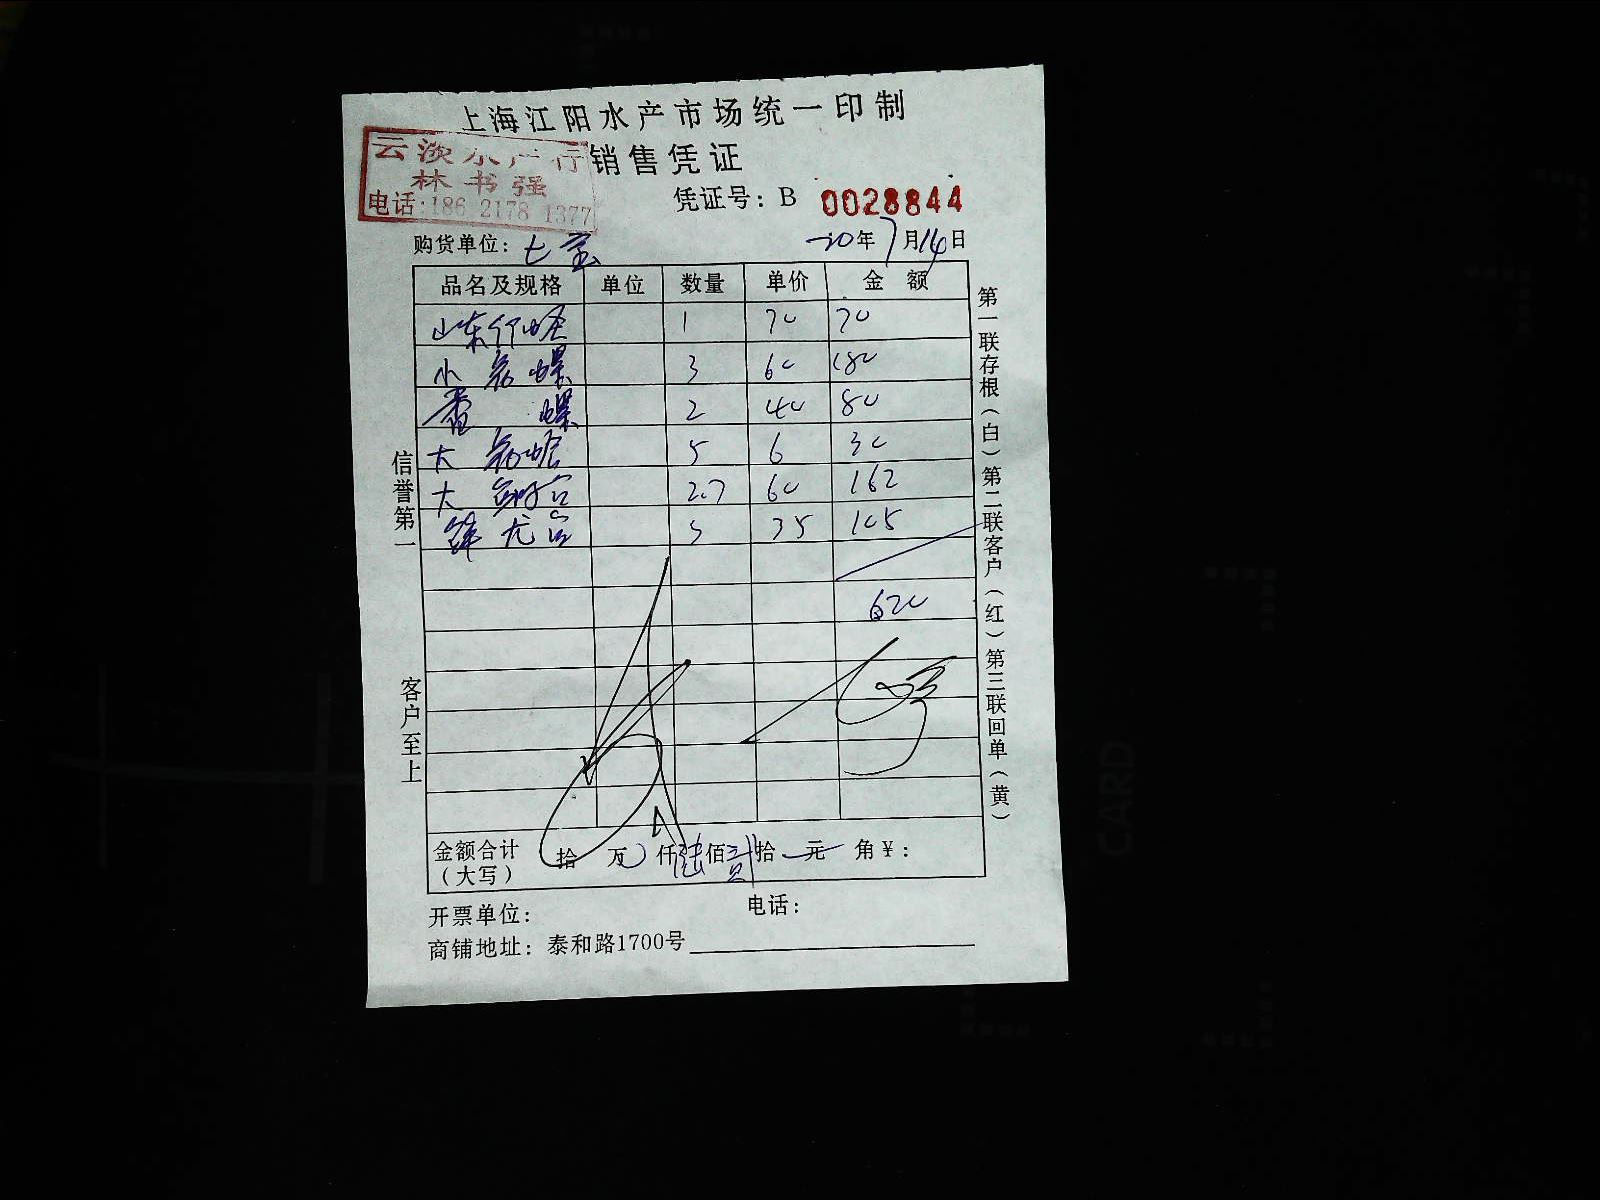 上海江阳水产市场统一印制
云淡水产行 销售凭证
林书强
电话:186 2178 1377
凭证号: B 0028844
购货单位: 七宝 20年7月14日
品名及规格 单位 数量 单价 金额
山东 1 70 70
小 螺 3 60 180
香螺 2 40 80
大 5 6 30
大 2.7 60 162
3 35 105
620
金额合计 拾 万 仟陆佰贰拾 元 角 ¥:
(大写)
开票单位: 电话:
商铺地址: 泰和路1700号
信誉第一
客户至上
第一联存根(白)第二联客户(红)第三联回单(黄)
CARD